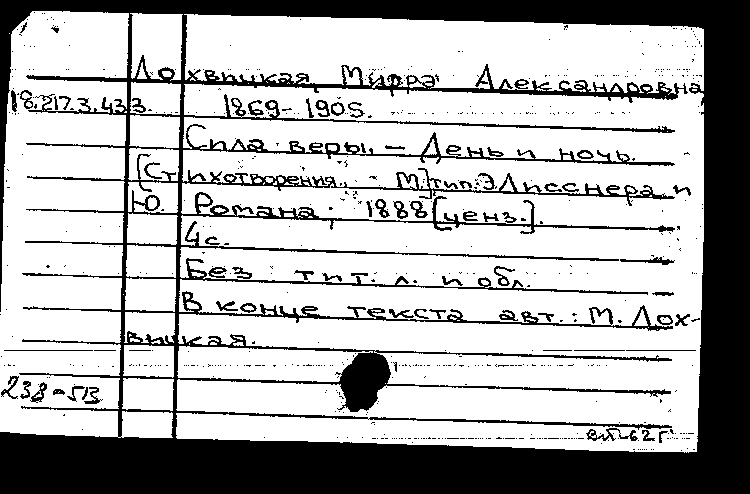 Лохвицкая, Миррэ Александровна,
18.217.3.433. 1869-1905.
Сила веры. – День и ночь.
[Стихотворения. М.] тип. Э Лисснера и
Ю. Романа, 1888 [ценз.].
4с.
Без тит. л. и обл.
В конце текста авт.: М. Лох-
вицкая.
238-5В